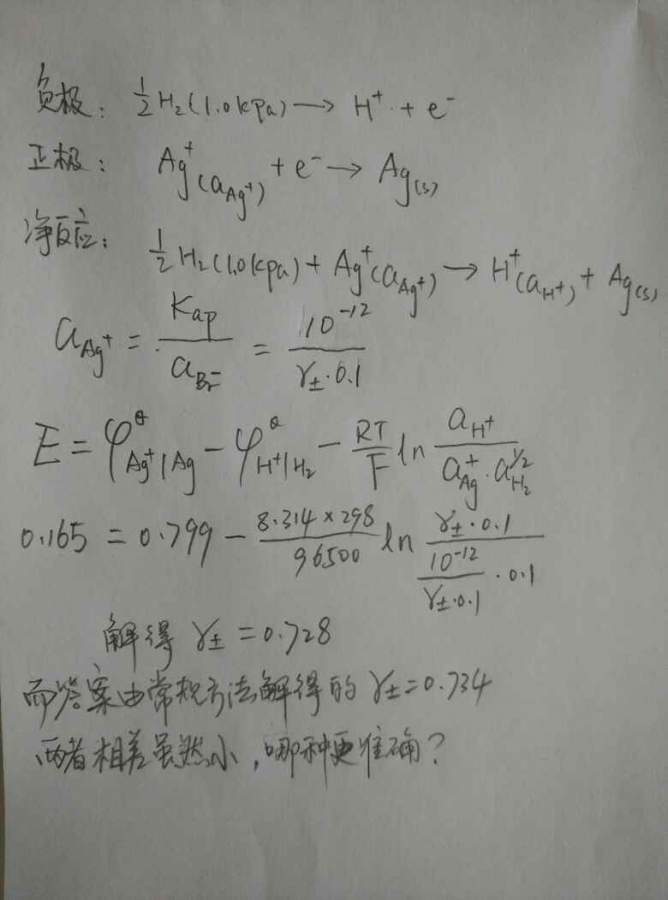 负极: ½H₂(1.0kpa) ⟶ H⁺ + e⁻
正极: Ag⁺(a_Ag⁺) + e⁻ → Ag(s)
净反应: ½H₂(1.0kpa) + Ag⁺(a_Ag⁺) → H⁺(a_H⁺) + Ag(s)
a_Ag⁺ = Kap / a_Br⁻ = 10⁻¹² / (γ±·0.1)
E = φ^θ_Ag⁺|Ag − φ^θ_H⁺|H₂ − (RT/F) ln (a_H⁺ / (a_Ag⁺·a_H₂^½))
0.165 = 0.799 − (8.314×298 / 96500) ln (γ±·0.1 / ((10⁻¹² / (γ±·0.1))·0.1))
解得 γ± = 0.728
而答案由常规方法解得的 γ±=0.734
两者相差虽然小,哪种更准确?